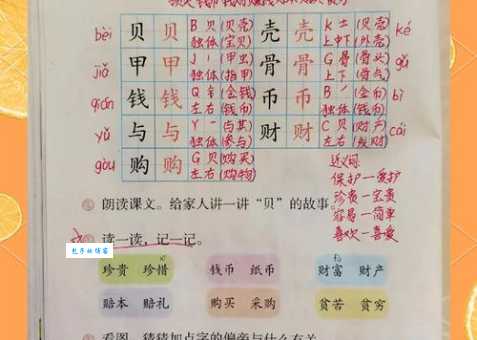 bèi 贝 贝 B 贝 (贝壳) 壳 壳 K 士 (贝壳) ké
独体 (宝贝) 上中下 (外壳)
jiǎ 甲 甲 J 丨 (甲虫) 骨 骨 G 骨 (骨头) gǔ
独体 (指甲) 上下 (骨点)
qián 钱 钱 Q 钅 (金钱) 币 币 B 丿 (金币) bì
左右 (钱币) 独体 (钱币)
yǔ 与 与 Y 一 (与其) 财 财 C 贝 (财产) cái
独体 (参与) 左右 (发财)
gòu 购 购 G 贝 (购买) 近义词
左右 (购物) 保护—爱护
珍贵—宝贵
朗读课文。给家人讲一讲“贝”的故事。
容易—简单
喜欢—喜爱
读一读,记一记。
珍贵 珍惜 钱币 纸币 财富 财产
赔本 赔礼 购买 采购 贫苦 贫穷
看图,猜猜加点字的偏旁与什么有关